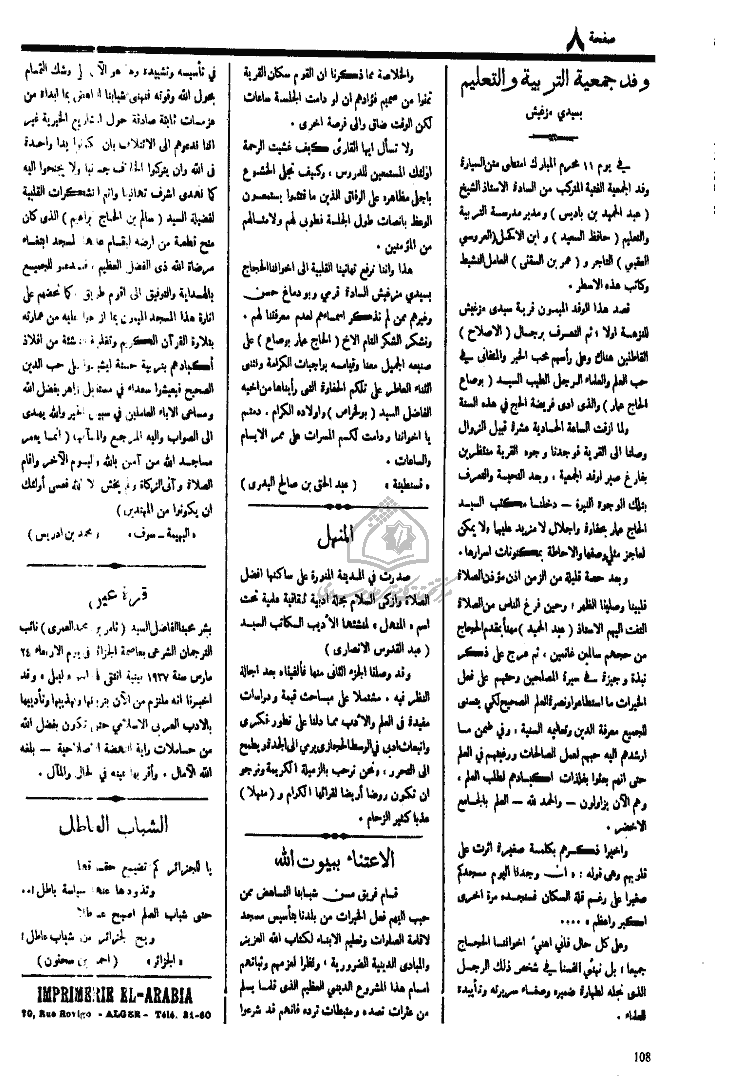 صفحة ٨
وفد جمعية التربية والتعليم
بسيدي مزغيش
في يوم ١١ محرم المبارك امتطى متن السيارة
وفد الجمعية الفتية المتركب من السادة الاستاذ الشيخ
( عبد الحميد بن باديس ) ومدير مدرسة التربية
والتعليم ( حافظ السعيد ) و ابن الاكحل (العروسي
العقبي ) التاجر و ( عمر بن السقني ) العامل النشيط
وكاتب هذه الاسطر .
قصد هذا الوفد الميمون قرية سيدي مزغيش
للنزهة اولا ؛ ثم التصرف برجال ( الاصلاح )
القاطنين هناك وعلى رأسهم محب الخير والمتفانى في
حب العلم والعلماء الرجل الطيب السيد ( بوصاع
الحاج عمار ) والذى ادى فريضة الحج في هذه السنة
ولما ازفت الساعة الحادية عشرة قبيل الزوال
وصلنا الى القرية فوجدنا وجوه القرية منتظرين
بفارغ صبر لوفد الجمعية ، وبعد التحية والتعرف
بتلك الوجوه النيرة – دخلنا مكتب السيد
الحاج عمار بحفاوة واجلال لا مزيد عليها ولا يمكن
لعاجز مثلي وصفها والاحاطة بمكنونات اسرارها .
وبعد حصة قليلة من الزمن اذن مؤذن الصلاة
فلبينا وصلينا الظهر ؛ وحين فرغ الناس من الصلاة
التفت اليهم الاستاذ ( عبد الحميد ) مهنأ بمقدم الحجاج
من حجهم سالمين غانمين ، ثم عرج على ذكر
نبذة وجيزة في سيرة المصلحين وحثهم على فعل
الخيرات ما استطاعوا ونصرة العلم الصحيح لكي يتسنى
للجميع معرفة الدين وتعاليمه السنية ، وفي ضمن ما
ارشدهم اليه حبهم لعمل الصالحات ورغبتهم في العلم
حتى انهم بعثوا بفلذات اكبادهم لطلب العلم ،
وهم الآن يزاولون – والحمد لله – العلم بالجامع
الاخضر .
واخيرا ذكرهم بكلمة صغيرة اثرت على
قلوبهم وهى قوله : « ان وجدنا اليوم مسجدكم
صغيرا على رغم قلة السكان فسنجده مرة اخرى
اكبر واعظم » ....
وعلى كل حال فاني اهنيء اخواننا الحجاج
جميعا ؛ بل نهنئ انفسنا في شخص ذلك الرجل
الذى نجله لطهارة ضميره وصفاء سريرته وتأييدة
للعلماء .
والخلاصة مما ذكرنا ان القوم سكان القرية
تمنوا من صميم فؤادهم ان لو دامت الجلسة ساعات
لكن الوقت ضاق والى فرصة اخرى .
ولا تسأل ايها القارئ كيف غشيت الرحمة
اولئك المستمعين للدروس ، وكيف تجلى الخشوع
باجلى مظاهره على الرفاق الذين ما فتئوا يستمعون
الوعظ بانصات طول الجلسة فطوبى لهم ولامثالهم
من المؤمنين .
هذا واننا نرفع تهانينا القلبية الى اخواننا الحجاج
بسيدي مزغيش السادة قرمي وبودماغ حسن
وغيرهم ممن لم نذكر اسماءهم لعدم معرفتنا لهم .
ونشكر الشكر التام الاخ ( الحاج عمار بوصاع ) على
صنيعه الجميل معنا وقيامه بواجبات الكرامة ونثنى
الثناء العاطر على تلكم الحفاوة التى رأيناها من اخيه
الفاضل السيد ( بولحراص ) واولاده الكرام . دمتم
يا اخواننا ودامت لكم المسرات على ممر الايام
والساعات .
« قسنطينة » ( عبد الحق بن صالح البدرى )
المنهل
صدرت في المدينة المنورة على ساكنها افضل
الصلاة وازكى السلام مجلة ادبية ثقافية علمية تحت
اسم « المنهل » لمنشئها الأديب الكاتب السيد
( عبد القدوس الانصارى ) .
وقد وصلنا الجزء الثانى منها فألفيناه بعد اجالة
النظر فيه . مشتملا على مباحث قيمة ودراسات
مفيدة فى العلم والأدب مما دلنا على تطور فكرى
وانبعاث ادبى في الوسط الحجازى يرمي الى الجدة ويطمح
الى التحرر ، ونحن نرحب بالزميلة الكريمة ونرجو
ان تكون روضا أريضا لقرائها الكرام و ( منهلا )
عذبا كثير الزحام .
الاعتناء ببيوت الله
قام فريق من شبابنا الناهض ممن
حبب اليهم فعل الخيرات من بلدنا بتأسيس مسجد
لاقامة الصلوات وتعليم الابناء لكتاب الله العزيز
والمبادى الدينية الضرورية ؛ ونظرا لعزمهم وثباتهم
امام هذا المشروع الديني العظيم الذى قلما يسلم
من عثرات تصده ومثبطات ترده فانهم قد شرعوا
في تأسيسه وتشييده وها هو الآن على وشك التمام
بحول الله وقوته فنهنئ شبابنا الناهض بما ابداه من
عزمات ثابتة صادقة حول المشاريع الخيرية غير
اننا ندعوهم الى الائتلاف بان يكونوا يدا واحدة
في الله وان يتركوا الخلاف جانبا ولا يجنحوا اليه
كما نهدى اشرف تهانينا واتم تشكرات القلبية
لفضيلة السيد ( سالم بن الحاج ابراهيم ) الذى كان
منح قطعة من ارضه ليقام عليها المسجد ابتغاء
مرضاة الله ذى الفضل العظيم ، فندعو للجميع
بالهداية والتوفيق الى اقوم طريق . كما نحضهم على
انارة هذا المسجد الميمون بما ازمعوا عليه من عمارته
بتلاوة القرآن الكريم وتغذية الناشئة من افلاذ
أكبادهم بتربية حسنة ليشبوا على حب الدين
الصحيح فيعيشوا سعداء في مستقبل زاهر بفضل الله
ومساعى الاباء العاملين في سبيل الخير والله يهدى
الى الصواب واليه المرجع والمآب ( انما يعمر
مساجد الله من آمن بالله واليوم الآخر واقام
الصلاة وآتى الزكاة ولم يخش الا الله فعسى أولئك
ان يكونوا من المهتدين )
« البهيمة – سوف » « محمد بن ادريس )
قرة عين
بشر محبنا الفاضل السيد ( ثامر بن محمد العمرى ) نائب
الترجمان الشرعى بعاصمة الجزائر في يوم الاربعاء ٢٤
مارس سنة ١٩٣٧ ببنية انثى ليلى ) وقد
اخبرنا انه ملتزم من الآن بتربيتها وتهذيبها وتأديبها
بالادب العربى الاسلامي حتى تكون بفضل الله
من حاملات راية النهضة الاصلاحية – بلغه
الله الآمال . وأقر بها عينه في الحال والمآل .
الشباب العاطل
يا للجزائر كم تضيع حقوقها
وتذودها عنها سياسة باطل !..
حتى شباب العلم اصبح عاطلا
ويح الجزائر من شباب عاطل !
« الجزائر » ( احمد بن سحنون )
IMPRIMERIE EL-ARABIA
20, Rue Rovigo - ALGER - Télé. 31-60
108